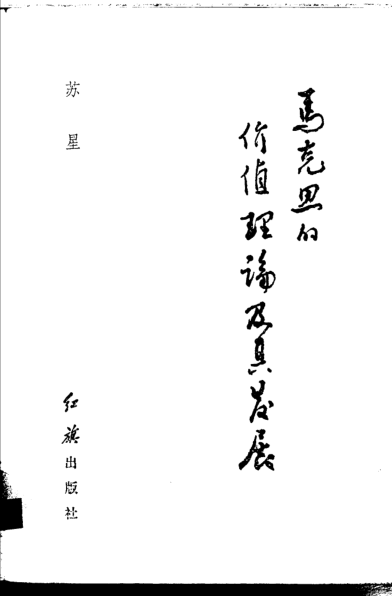 馬克思的
价值理論及其发展
苏星
红旗出版社